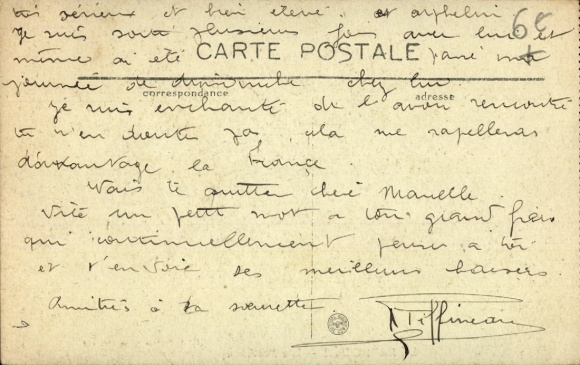 très sérieux et bien élevé, et orphelin
je suis sorti plusieurs fois avec lui et
68
même ai été passé ma
CARTE POSTALE
journée de dimanche chez lui.
correspondance
adresse
je suis enchanté de l'avoir rencontré
tu n'en doutes pas, cela me rapelleras
davantage la France.
Vais te quitter chère Marcelle.
Vite un petit mot a ton grand frère
qui continuellement pense a toi
et t'envoie ses meilleurs baisers.
Amitiés à ta sœurette